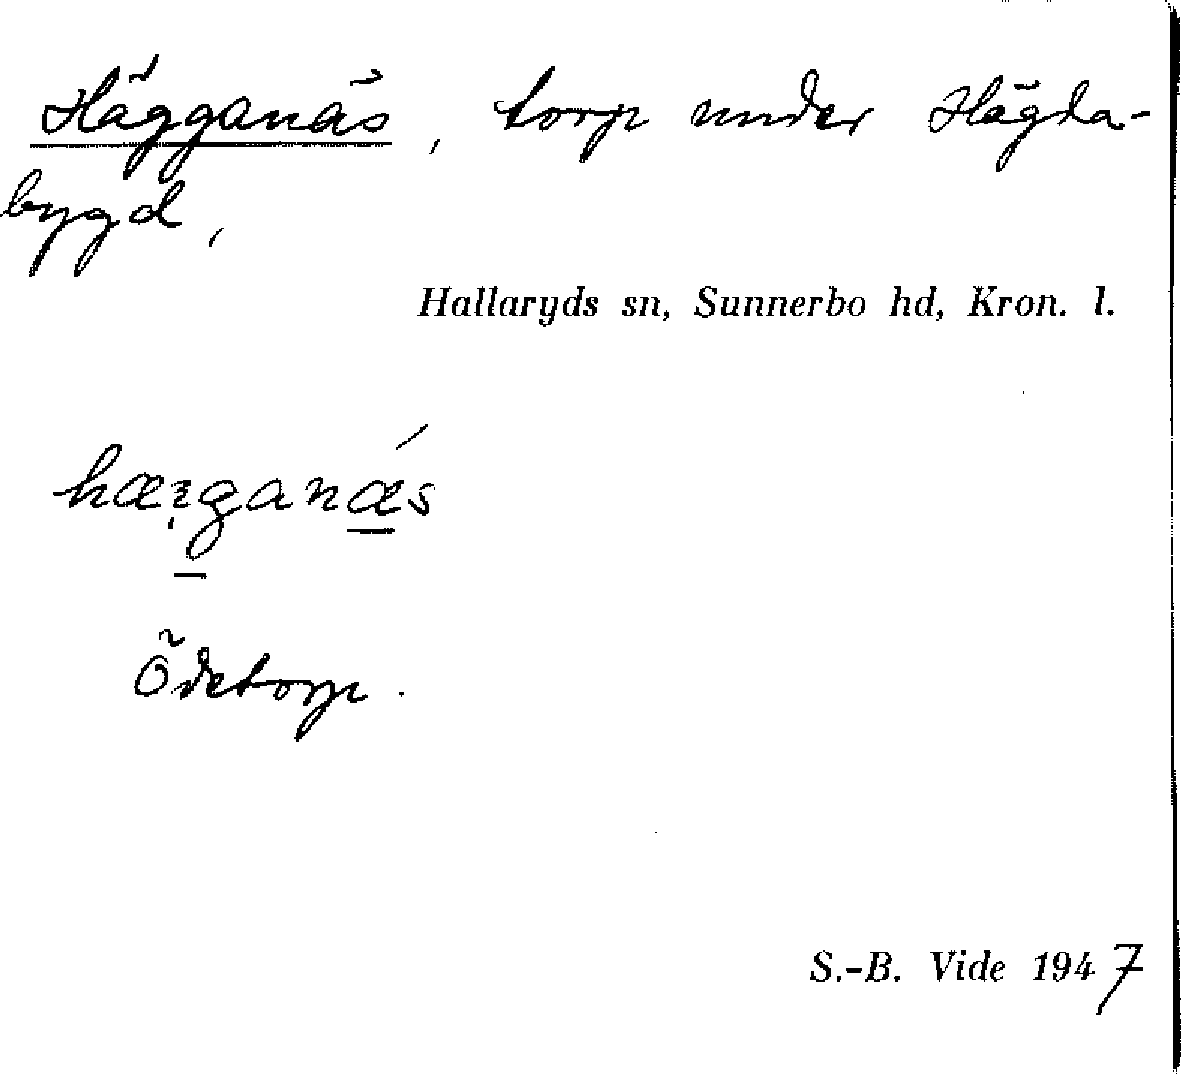 Hägganäs, torp under Hägda-
bygd,
Hallaryds sn, Sunnerbo hd, Kron. l.
Ödetorp.
S.-B. Vide 1947